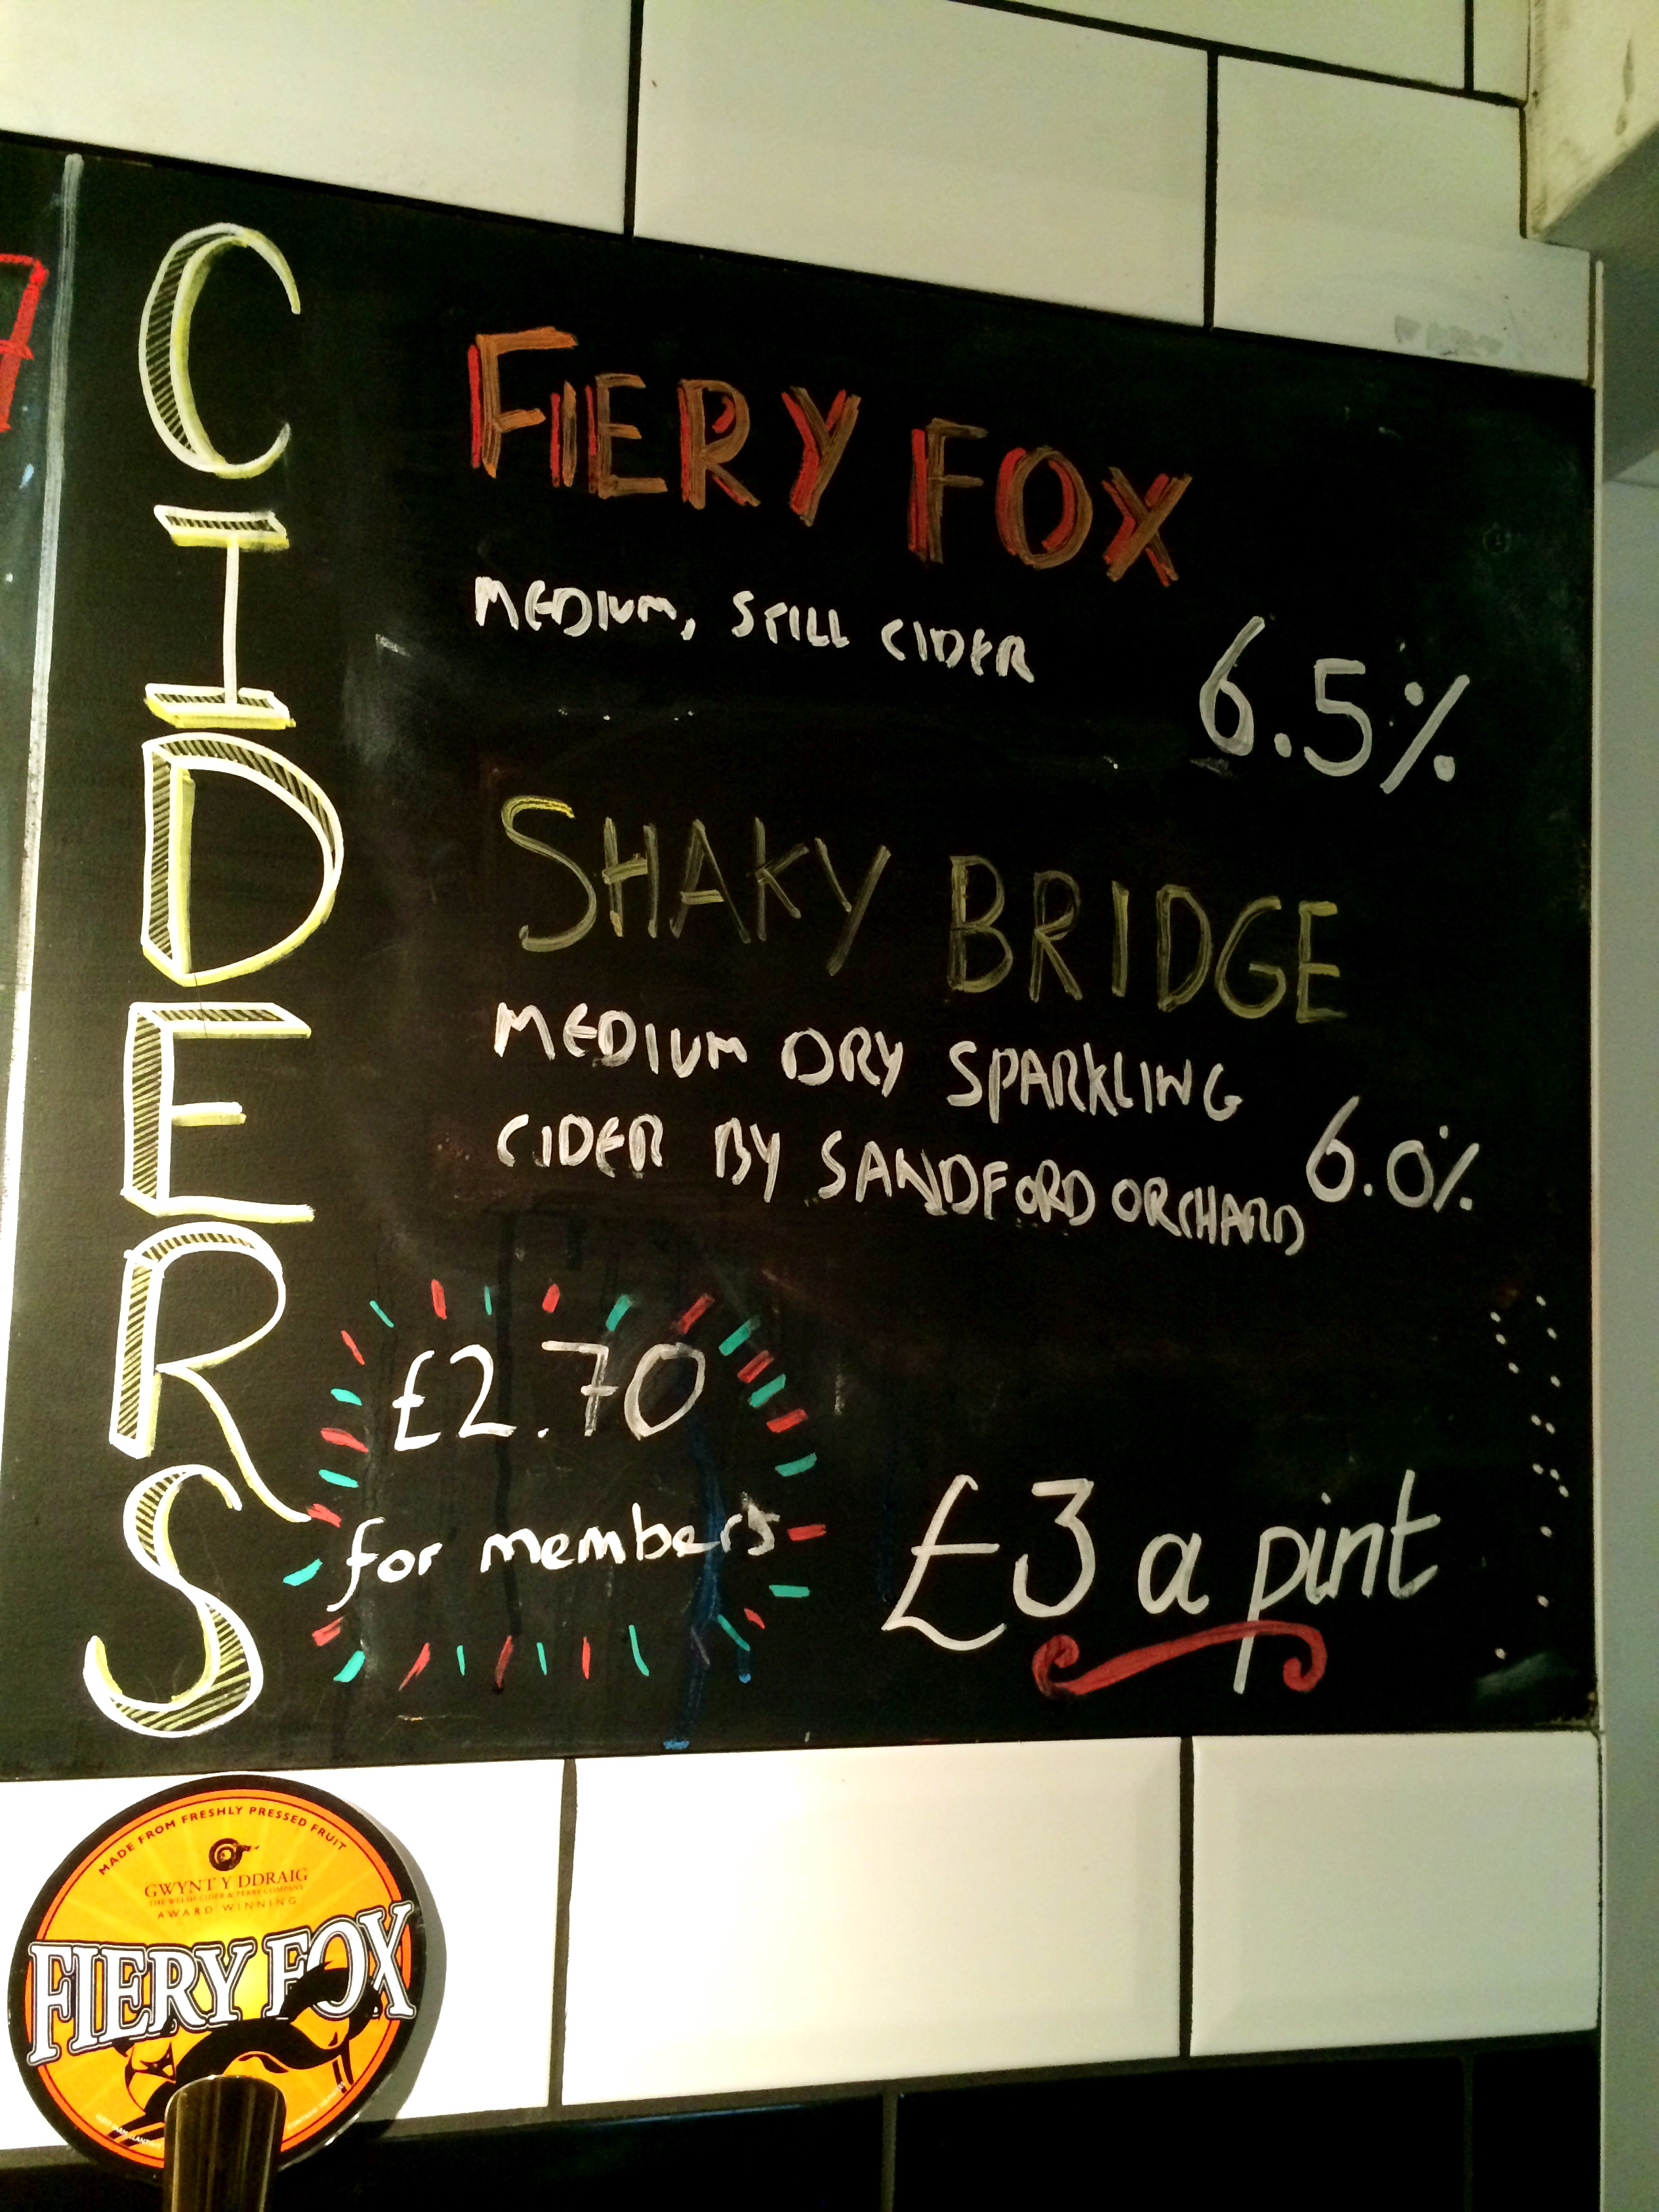 CIDERS
FIERY FOX
MEDIUM, STILL CIDER
6.5%
SHAKY BRIDGE
MEDIUM DRY SPARKLING
CIDER BY SANDFORD ORCHARD
6.0%
£2.70
for members
£3 a pint
MADE FROM FRESHLY PRESSED FRUIT
GWYNT Y DDRAIG
THE WELSH CIDER & PERRY COMPANY
AWARD WINNING
FIERY FOX